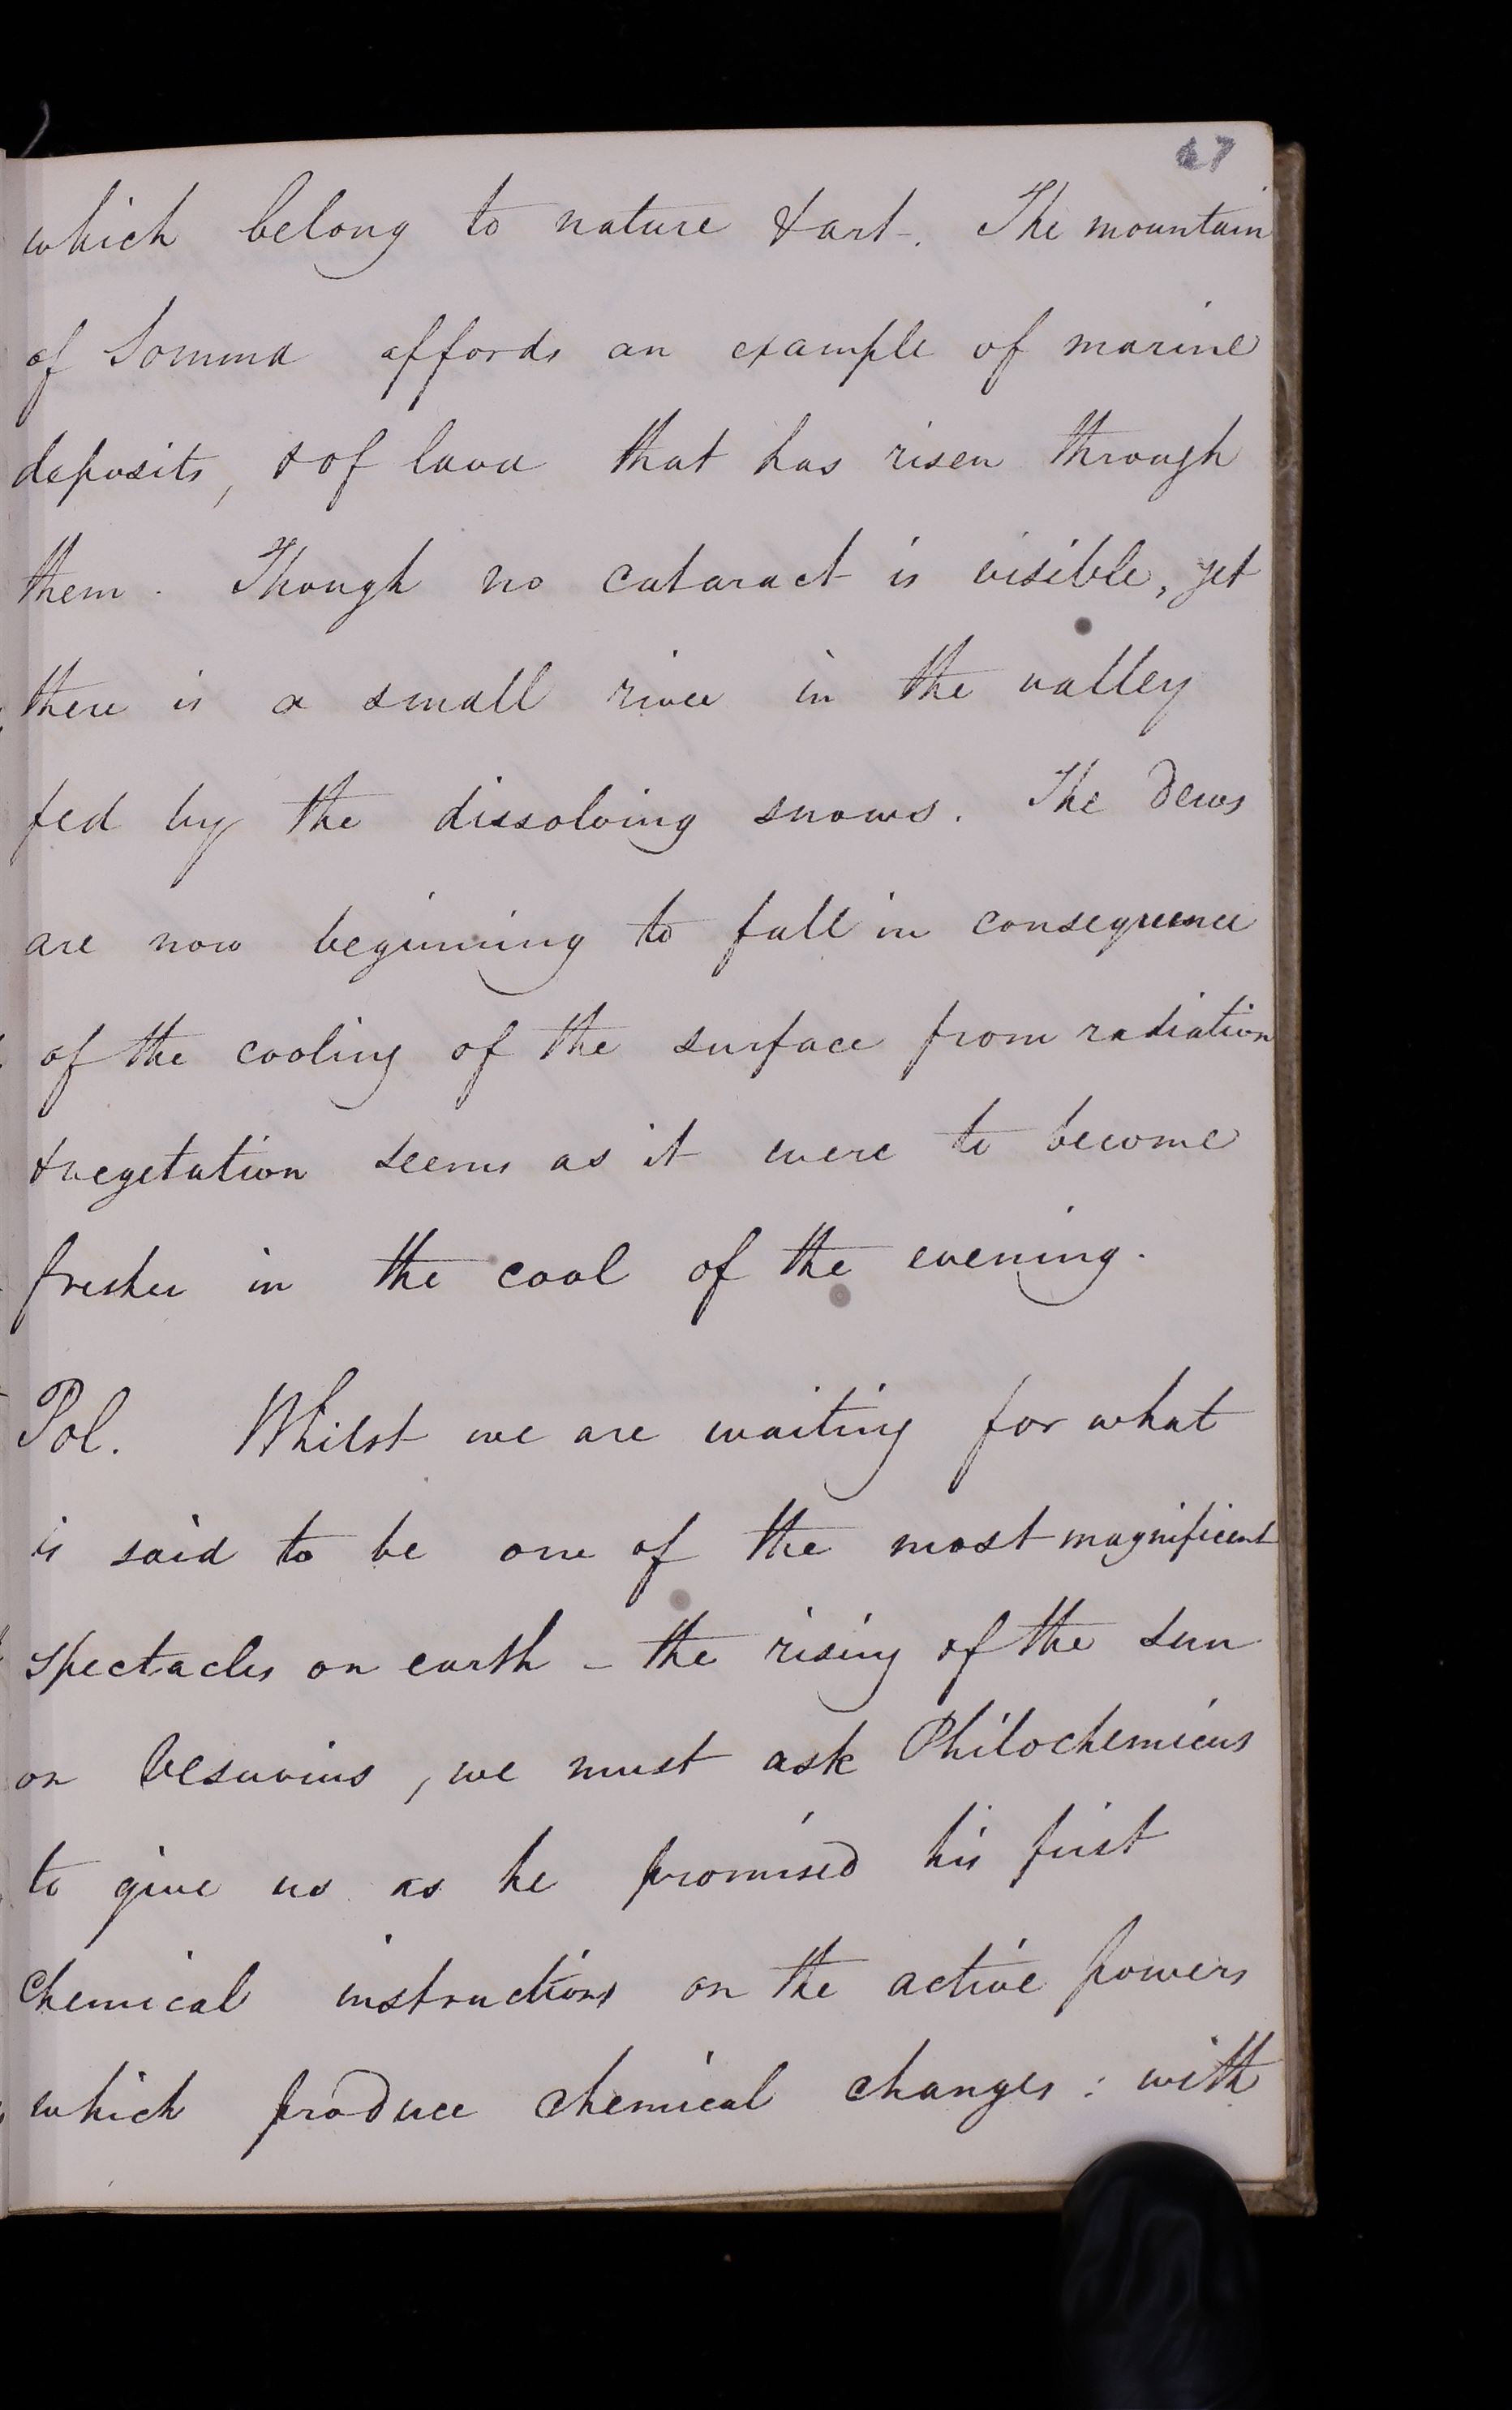 67
which belong to nature & art-. The mountain
of Somma affords an example of marine
deposits, & of lava that has risen through
them. Though no cataract is visible, yet
there is a small river in the valley
fed by the dissolving snows. The dews
are now beginning to fall in consequence
of the cooling of the surface from radiation
& vegetation seems as it were to become
fresher in the cool of the evening.
Pol. Whilst we are waiting for what
is said to be one of the most magnificent
spectacles on earth - the rising of the sun
on Vesuvius, we must ask Philochemicus
to give us as he promised his first
chemical instructions on the active powers
which produce chemical changes: with